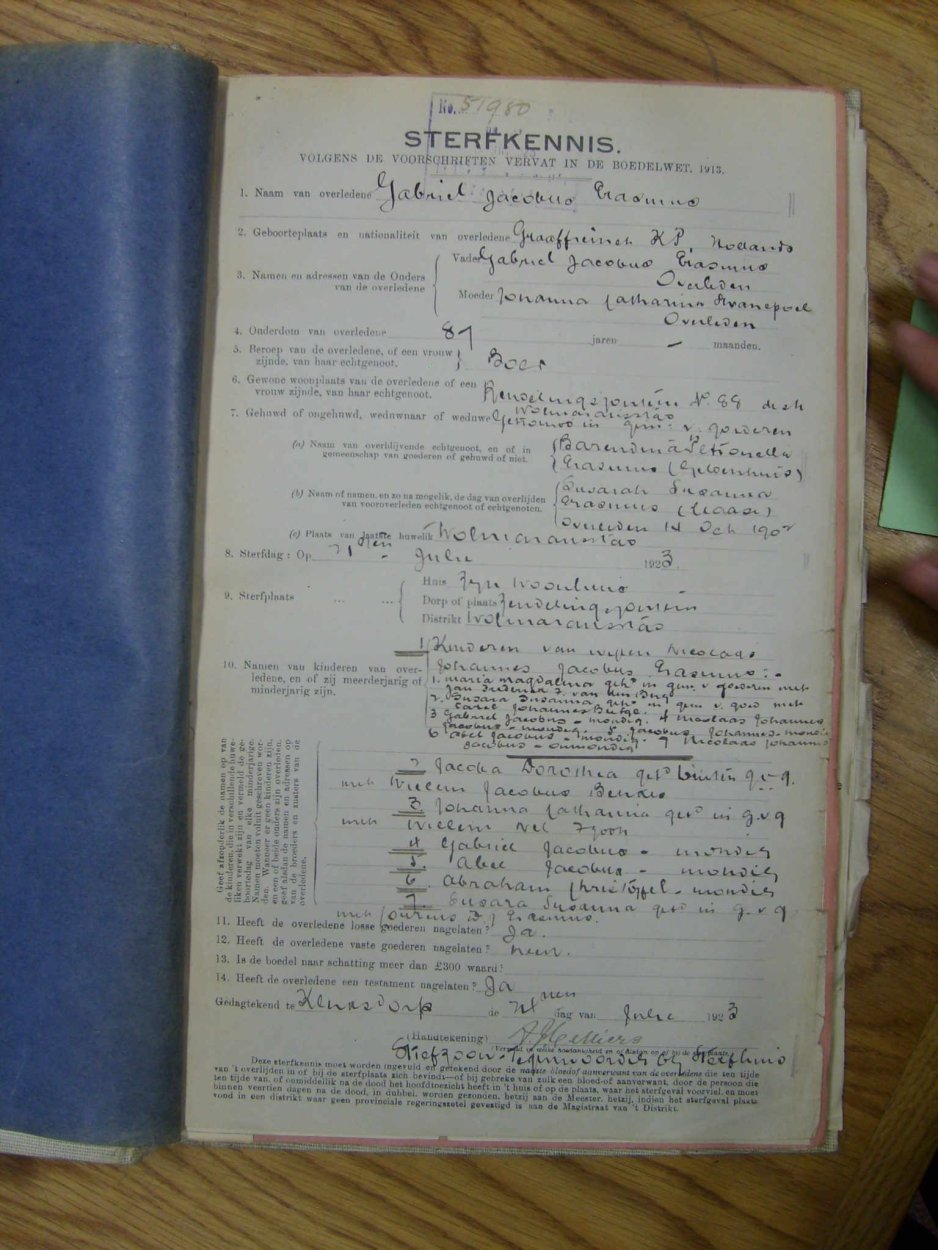 No. 51980
STERFKENNIS.
VOLGENS DE VOORSCHRIFTEN VERVAT IN DE BOEDELWET, 1913.
1. Naam van overledene Gabriel Jacobus Erasmus
2. Geboorteplaats en nationaliteit van overledene Graaffreinet KP. Hollands
3. Namen en adressen van de Ouders van de overledene
Vader Gabriel Jacobus Erasmus
Overleden
Moeder Johanna Catharina Swanepoel
Overleden
4. Ouderdom van overledene 87 jaren — maanden.
5. Beroep van de overledene, of een vrouw zijnde, van haar echtgenoot. Boer
6. Gewone woonplaats van de overledene of een vrouw zijnde, van haar echtgenoot. Zendelingsfontein No. 88 distr
Wolmaransstad
7. Gehuwd of ongehuwd, weduwnaar of weduwe Getrouwd in gem: v. goederen
(a) Naam van overblijvende echtgenoot, en of in gemeenschap van goederen of gehuwd of niet.
Barendina Petronella
Erasmus
(b) Naam of namen, en zo na mogelik, de dag van overlijden van vooroverleden echtgenoot of echtgenoten.
Susarah Susanna
Erasmus
Overleden 14 Oct 190
(c) Plaats van laatste huwelik Wolmaransstad
8. Sterfdag: Op 21sten Julie 1923
9. Sterfplaats ... ...
Huis Zyn Woonhuis
Dorp of plaats Zendelingsfontein
Distrikt Wolmaransstad
10. Namen van kinderen van overledene, en of zij meerderjarig of minderjarig zijn.
1. Kinderen van wylen Nicolaas
Johannes Jacobus Erasmus:-
1. Maria Magdalena geh: in gem. v goederen met
Jan F. van den Berg
2. Susara Susanna geh: in gem v. goed met
Carel Johannes
3 Gabriel Jacobus - mondig. 4 Nicolaas Johannes
Jacobus - mondig. 5. Jacobus Johannes - mondig
6 Abel Jacobus - mondig. 7 Nicolaas Johannes
Jacobus - onmondig
Geef afzonderlik de namen op van de kinderen, die in verschillende huweliken verwekt zijn en vermeld de geboortedag van elke minderjarige. Namen moeten voluit geschreven worden. Wanneer er geen kinderen zijn, en een of beide ouders zijn overleden, geef alsdan de namen en adressen op van de broeders en zusters van de overledene.
2. Jacoba Dorothea get: buiten g.v.g.
met Willem Jacobus
3. Johanna Catharina get in g.v.g
met Willem
4 Gabriel Jacobus - mondig
5. Abel Jacobus - mondig
6. Abraham Christoffel - mondig
7. Susara Susanna get in g.v.g.
met Erasmus.
11. Heeft de overledene losse goederen nagelaten? Ja.
12. Heeft de overledene vaste goederen nagelaten? Neen.
13. Is de boedel naar schatting meer dan £300 waard?
14. Heeft de overledene een testament nagelaten? Ja
Gedagtekend te Klerksdorp de dag van Julie 1923
(Handtekening)
Stiefzoon - Tegenwoordig bij Sterfhuis
Deze sterfkennis moet worden ingevuld en getekend door de naaste bloed of aanverwant van de overledene die ten tijde
van 't overlijden in of bij de sterfplaats zich bevindt—of bij gebreke van zulk een bloed-of aanverwant, door de persoon die
ten tijde van, of onmiddellik na de dood het hoofdtoezicht heeft in 't huis of op de plaats, waar het sterfgeval voorviel, en moet
binnen veertien dagen na de dood, in dubbel, worden gezonden, hetzij aan de Meester, hetzij, indien het sterfgeval plaats
vond in een distrikt waar geen provinciale regeringszetel gevestigd is aan de Magistraat van 't Distrikt.